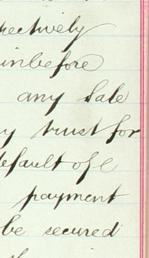 ectively
inbefore
any Sale
y trust for
efault of
payment
be secured